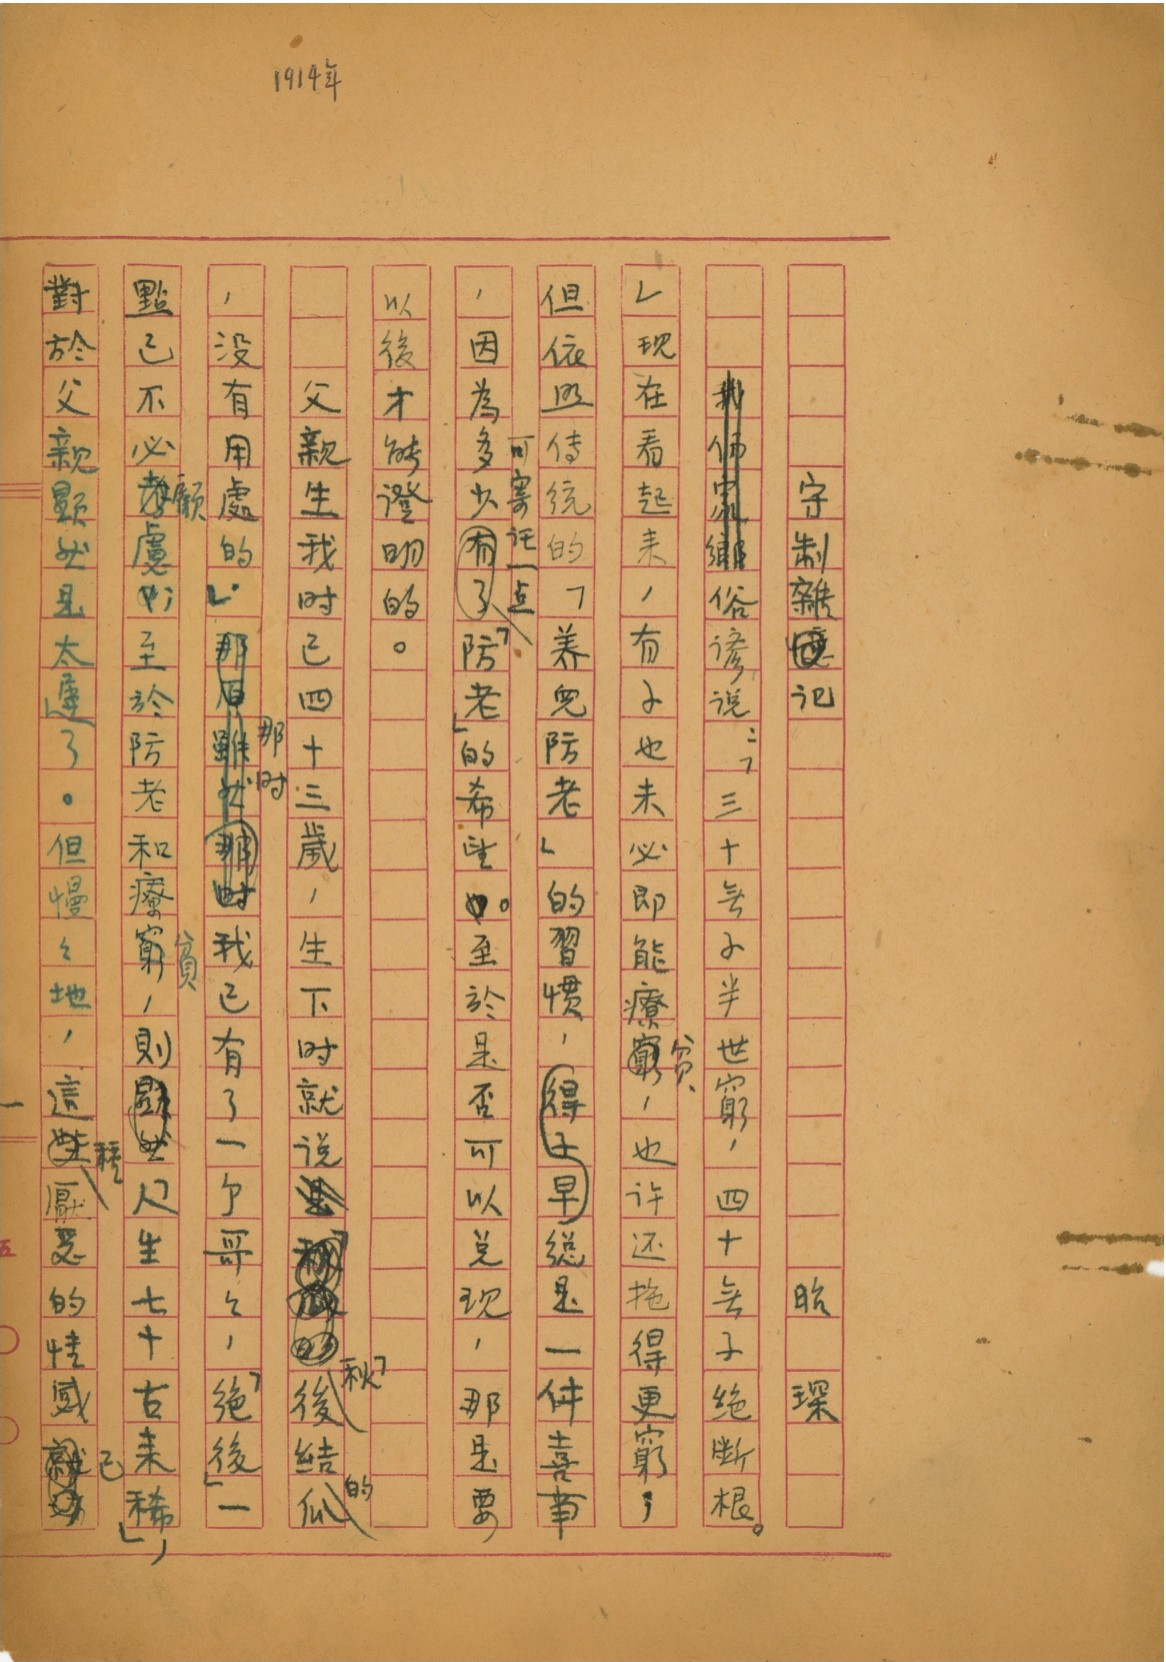 1914年
守制雜記　昭琛
俗諺说：「三十無子半世窮，四十無子绝断根。
」现在看起来，有子也未必即能療貧，也许还拖得更窮，
但依照传统的「养兒防老」的習慣，總是一件喜事
，因為多少可寄託一点「防老」的希望。至於是否可以兑现，那是要
以後才能證明的。
父親生我时已四十三歲，生下时就说「秋後結瓜的
，没有用處的」。那时我已有了一个哥々，「绝後」一
點已不必顧慮，至於防老和療貧，則人生七十古来稀」，
對於父親顯然是太遠了。但慢々地，這種厭惡的情感已
一
五